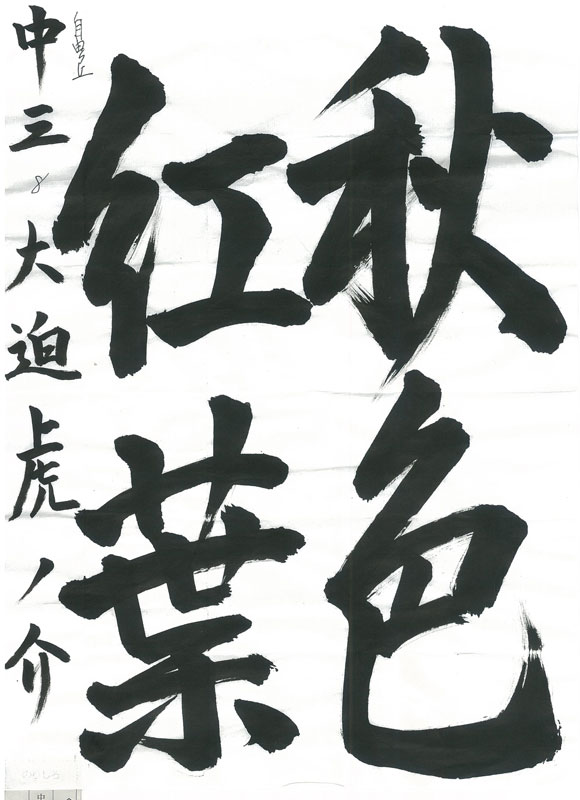 秋色
紅葉
自由ヶ丘
中三 大迫虎ノ介
8